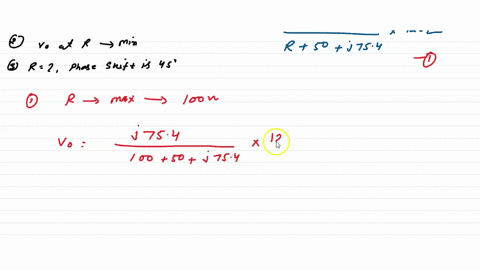 ② Vo at R → min
③ R = ?, phase shift is 45°
R + 50 + j75.4
①
① R → max → 100Ω
Vo : j75.4 / 100 + 50 + j75.4 × 12